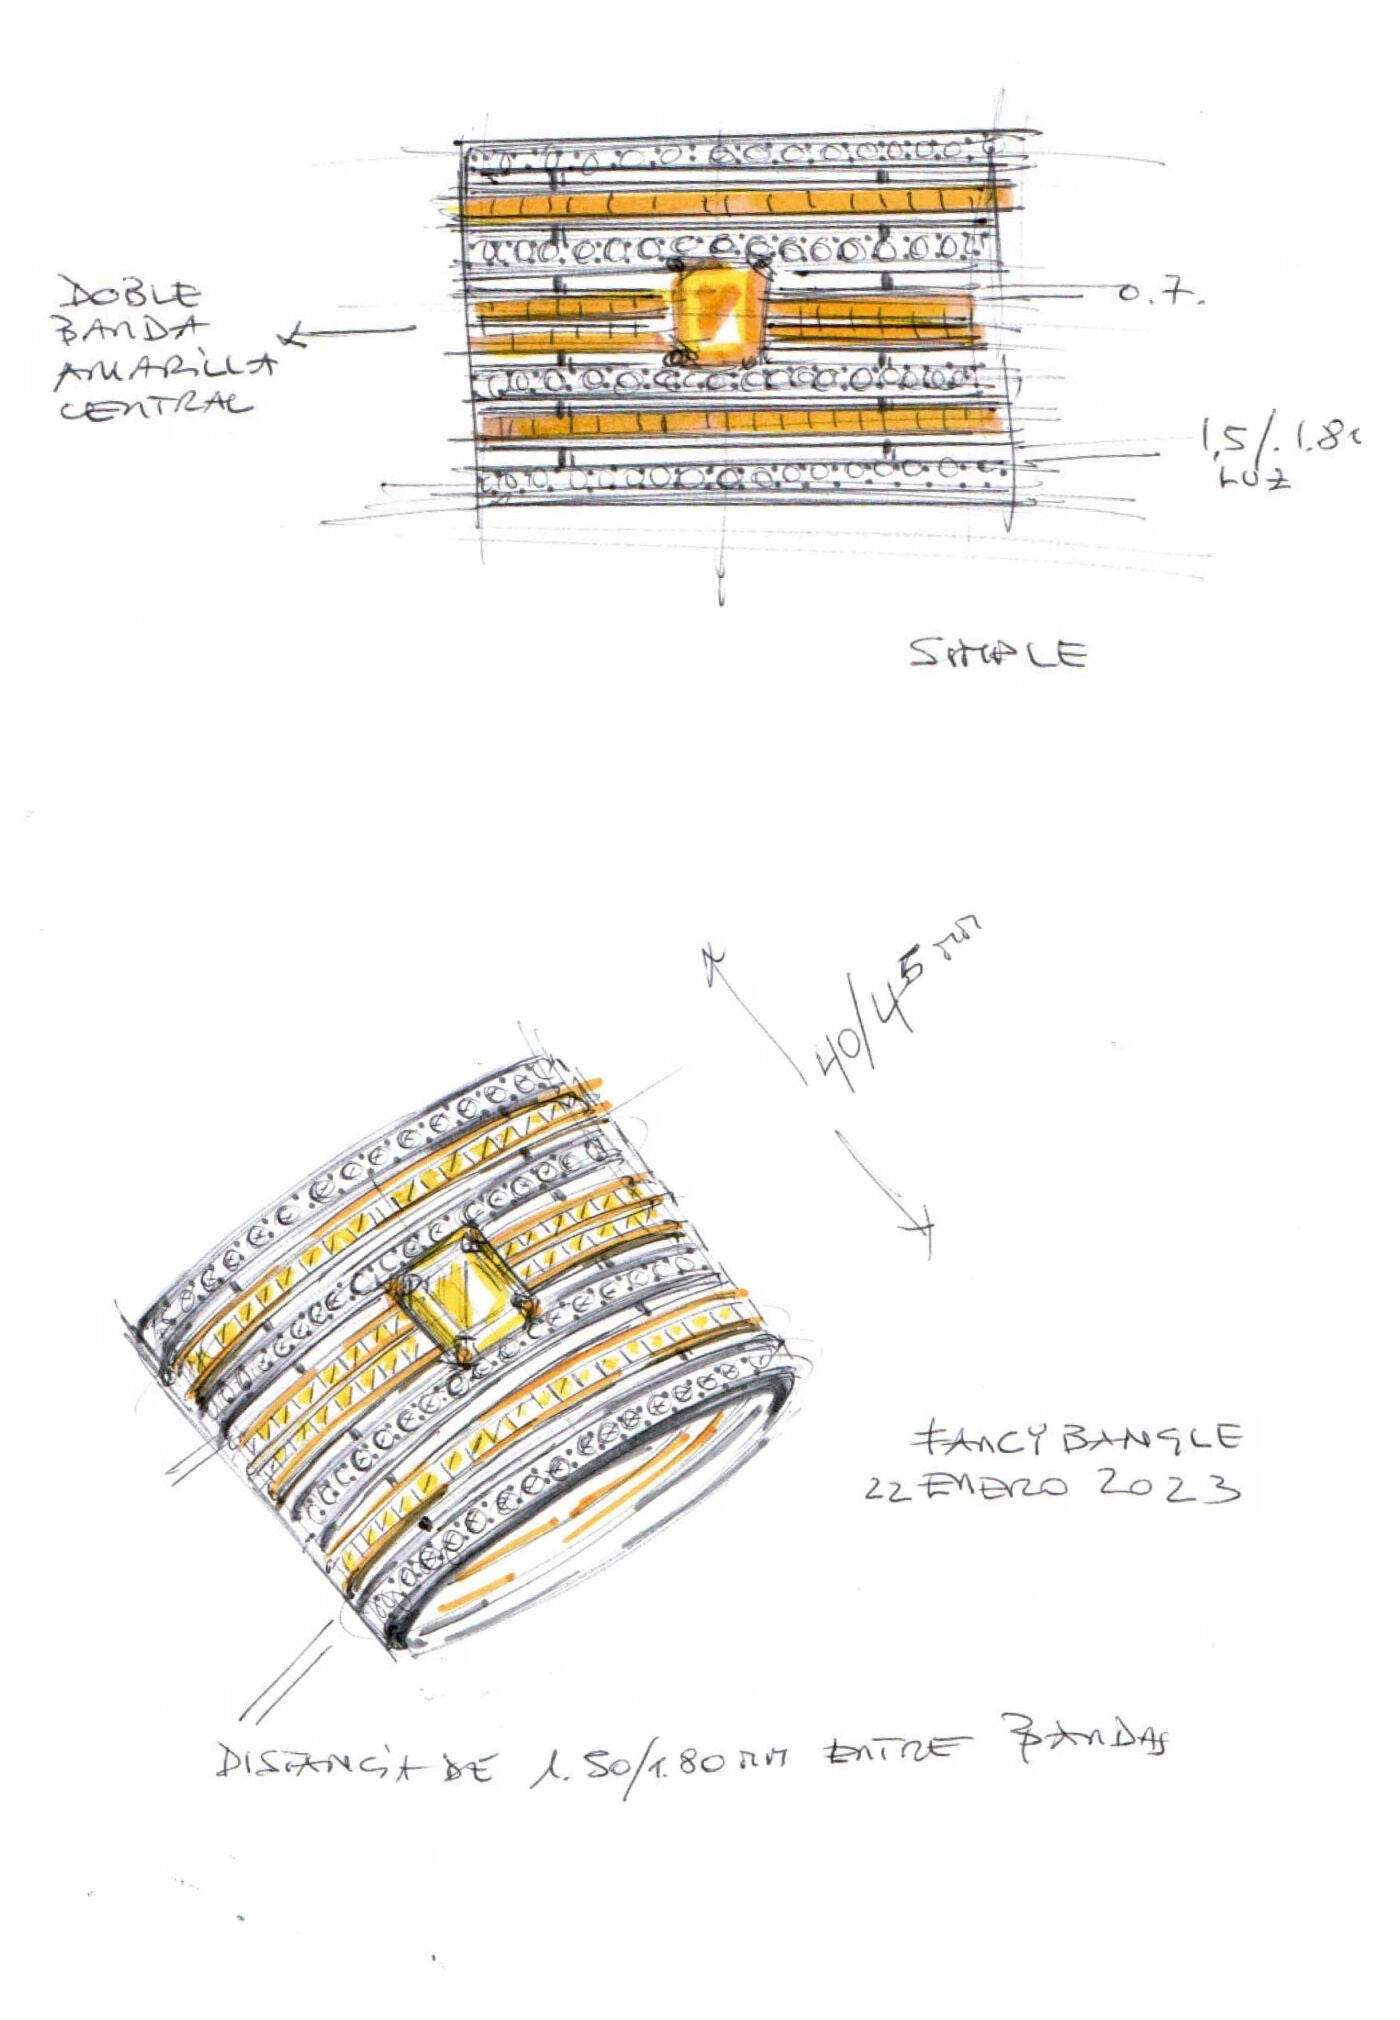 DOBLE
BANDA
AMARILLA
CENTRAL
0.7.
1,5/.1.8
LUZ
SIMPLE
40/45 mm
FANCY BANGLE
22 ENERO 2023
DISTANCIA DE 1.50/1.80 mm ENTRE BANDAS